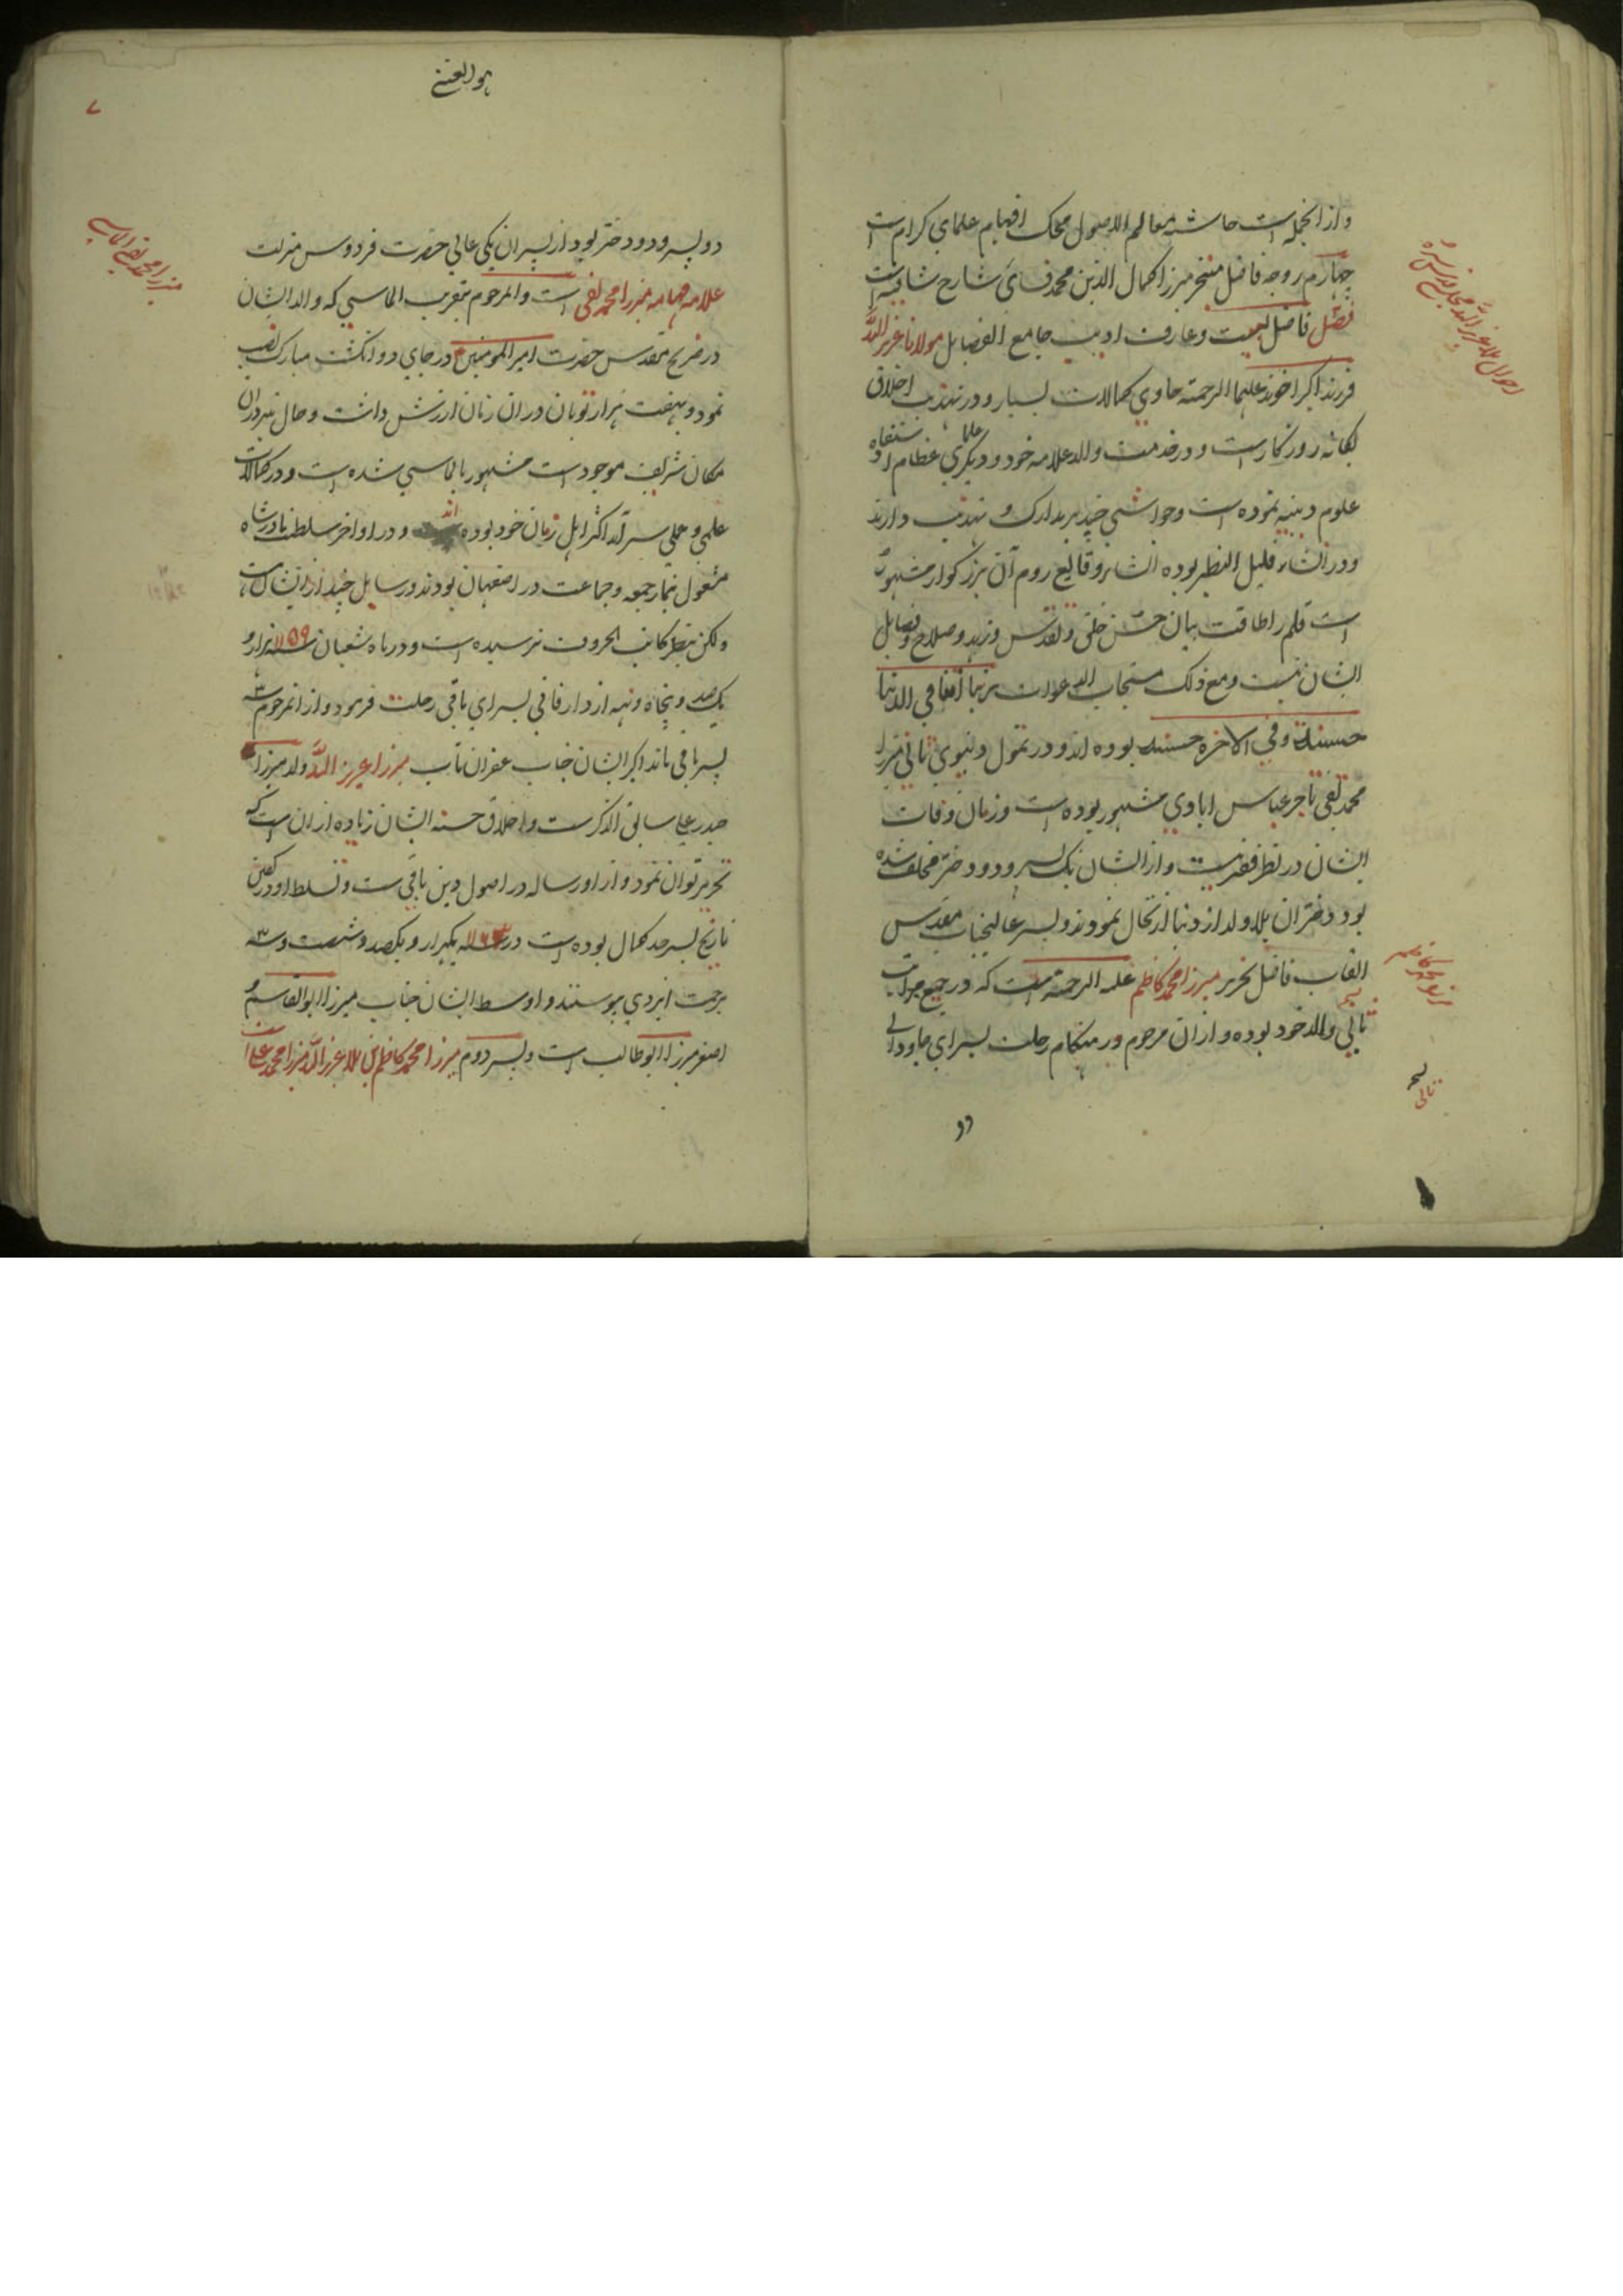 و از انجمله است حاشیه معالم الاصول محک افهام علمای کرام است
چهارم زوجه فاضل متبحر میرزا کمال الدین محمد فسائی شارح شافیه است
فصل فاضل لبیب و عارف ادیب جامع الفضایل مولانا عزیز الله
فرزند اکبر اخوند علیهما الرحمة حاوی کمالات بسیار و در تهذیب اخلاق
یگانه روزگار است و در خدمت والد علامه خود و دیگری علمای عظام استفاده
علوم دینیه نموده است و حواشی چند بر مدارک و تهذیب دارند
و در انشاء قلیل النظیر بوده انشاء وقایع روم آن بزرگوار مشهور
است قلم را طاقت بیان حسن خلق و تقدس و زهد و صلاح و فضایل
ایشان نیست و مع ذلک مستجاب الدعوات ربنا آتنا فی الدنیا
حسنة و فی الاخرة حسنة بوده اند و در تمول دنیوی ثانی میرزا
محمد تقی تاجر عباس ابادی مشهور بوده است و زمان وفات
ایشان در نظر فقیر نیست و از ایشان یک پسر و دو دختر مخلف شده
بود دختران بلا ولد از دنیا ارتحال نمودند و پسر عالیجناب مقدس
القاب فاضل نحریر میرزا محمد کاظم علیه الرحمة است که در جمیع مراتب
تالی والد خود بوده و از ان مرحوم در هنگام رحلت بسرای جاودانی
دو
احوال ملا عزیز الله مجلسی قدس سره
میرزا محمد کاظم
تالی
هو الغنی
۷
دو پسر و دو دختر بود از پسران یکی عالی حضرت فردوس منزلت
علامه فهامه میرزا محمد تقی است و المرحوم بتقریب الماسی که والد ایشان
در ضریح مقدس حضرت امیر المومنین در جای دو انگشت مبارک نصب
نمود و بهفت هزار تومان در ان زمان ارزش داشت و حال نیز در ان
مکان شریف موجود است مشهور بالماسی شده است و در کمالات
علمی و عملی سرآمد اکثر اهل زمان خود بوده اند و در اواخر سلطنت نادرشاه
مشغول نماز جمعه و جماعت در اصفهان بودند و رسایل چند از ایشان است
ولکن بنظر کاتب الحروف نرسیده است و در ماه شعبان سنه ۱۱۵۹ هزار و
یکصد و پنجاه و نه از دار فانی بسرای باقی رحلت فرمود و از انمرحوم سه
پسر باقی ماند اکبر ایشان جناب غفران مآب میرزا عزیز الله والد میرزا
حیدر علی سابق الذکر است و اخلاق حسنه ایشان زیاده از ان است که
تحریر توان نمود و از او رساله در اصول دین باقی است و تسلط او در فن
تاریخ بسرحد کمال بوده است در سنه ۱۱۶۳ یکهزار و یکصد و شصت و سه
برحمت ایزدی پیوستند و اوسط ایشان جناب میرزا ابوالقاسم و
اصغر میرزا ابوطالب است و پسر دوم میرزا محمد کاظم بن ملا عزیز الله میرزا محمد علی
میرزا محمد تقی الماسی